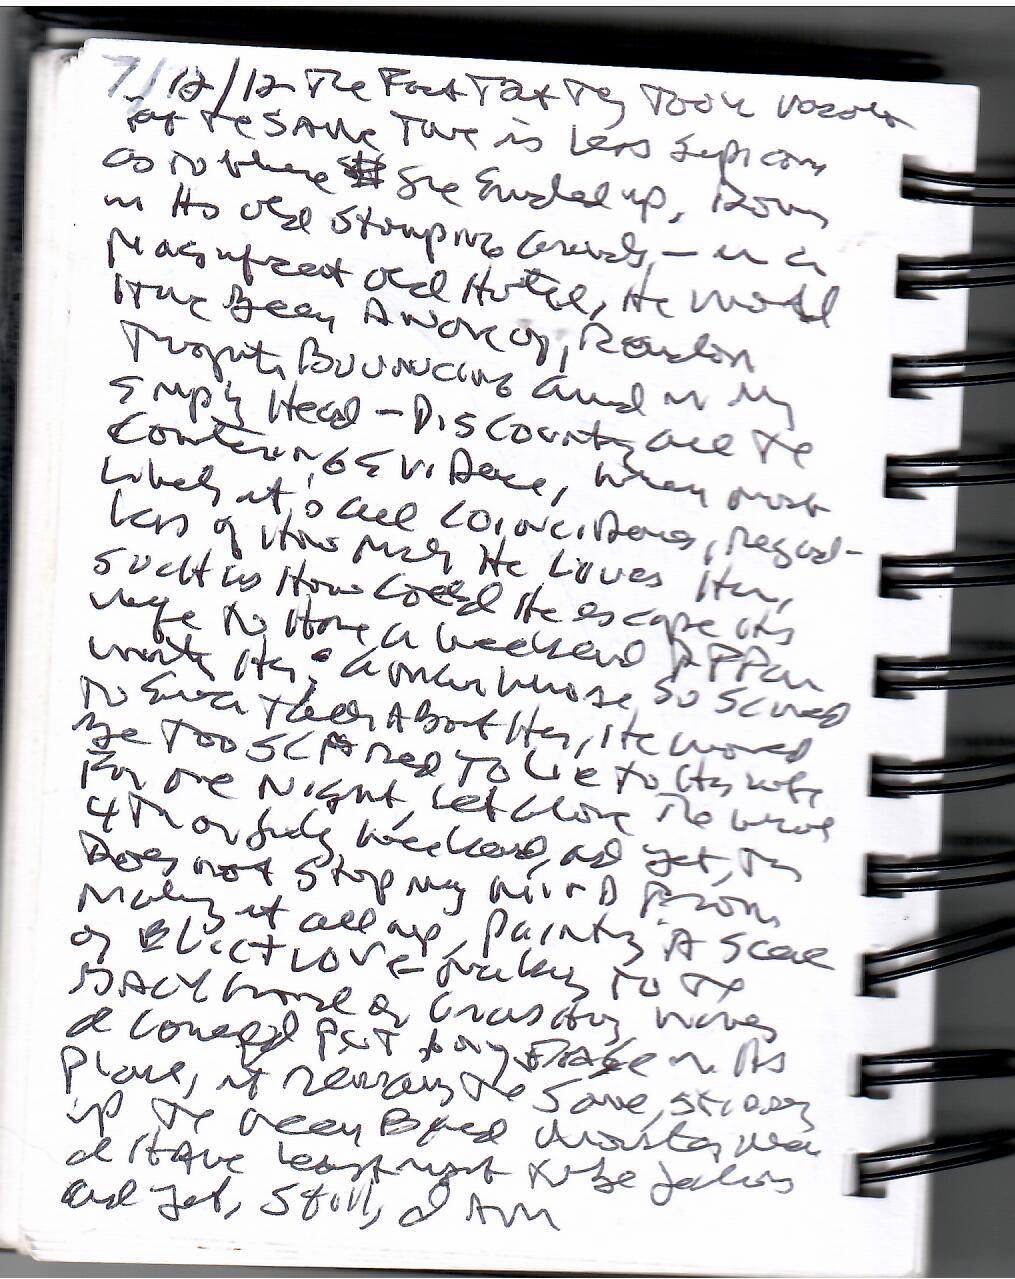 7/12/12 The Fact That They Took
at The SAMe Time is less suspicious
as to where She Ended up, Down
in His old Stomping Grounds — in a
Magnificent old Hotel, He would
Have Been A
Thought, Bouncing around in My
Empty Head — Discounting all The
EviDence, when most
Likely it's all CoinciDence, Regard-
less of How Much He Loves Her,
Such as How Could He escape His
wife to Have a weekend AFFair
with Her; a man whose So Scared
To Even Think About Her, He would
Be Too SCARed To Lie to His wife
For one Night, Let alone The whole
4Th of July Weekend, and yet, This
Does not Stop My MinD From
Making it all up, Painting A Scene
of ILLiCT LOVe Making To The
BACKground of Crashing Waves
I could Put Any Face in His
Place, it remains The Same, Stirring
up The Green Eyed Monster, when
I HAve Least right to Be Jealous
and yet, Still, I Am